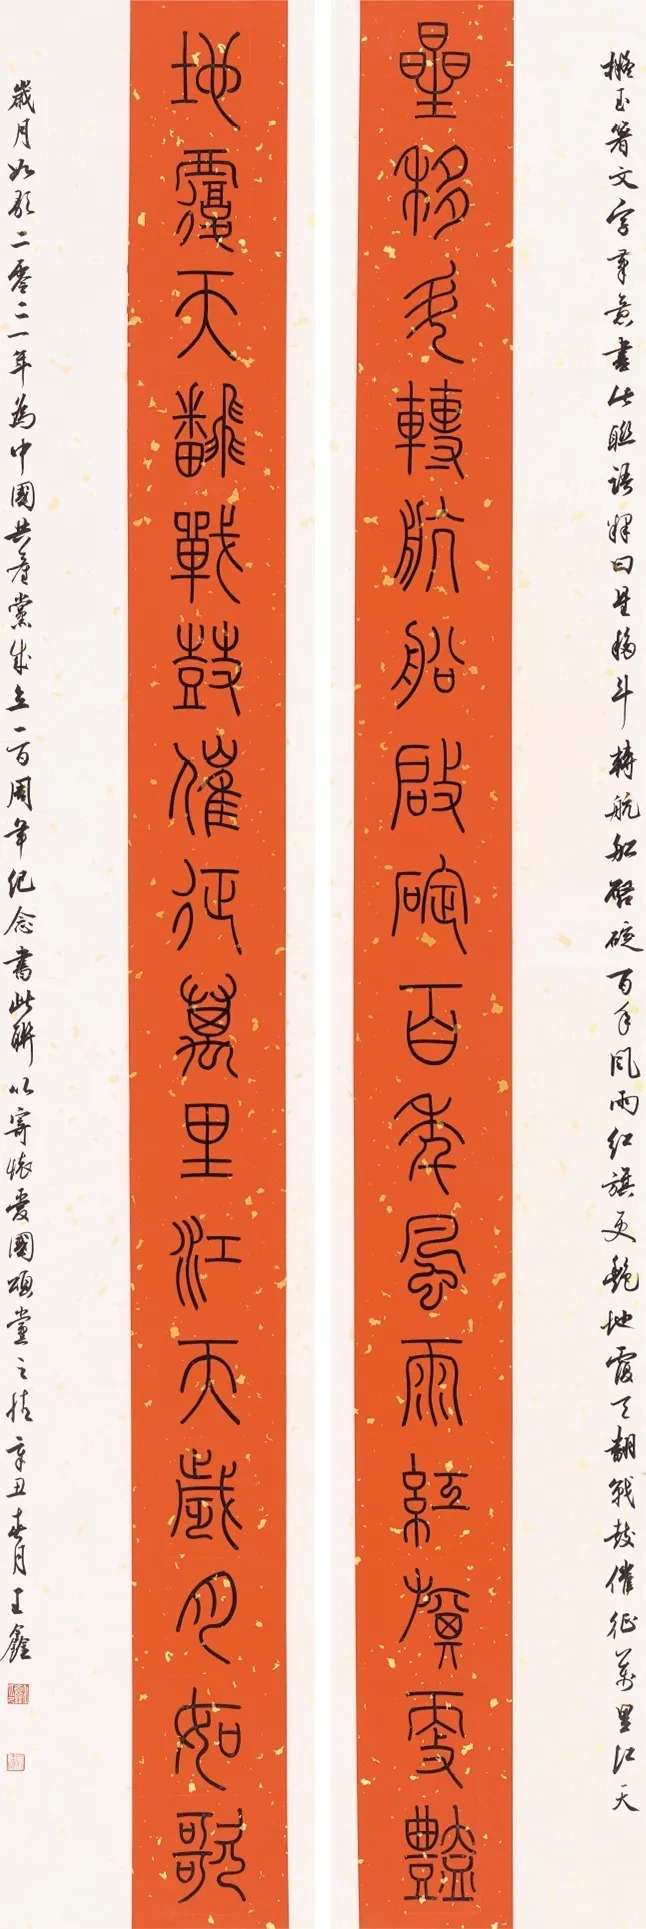 擬玉箸文字筆意書此聯語釋曰星移斗轉航船啓碇百年風雨紅旗更艷地覆天翻戰鼓催征萬里江天
星移斗轉航船啟碇百年風雨紅旗更豔
地覆天飜戰鼓催征萬里江天歲月如歌
歲月如歌二零二一年為中國共產黨成立一百周年紀念書此聯以寄懷愛國頌黨之情辛丑春月王鑫